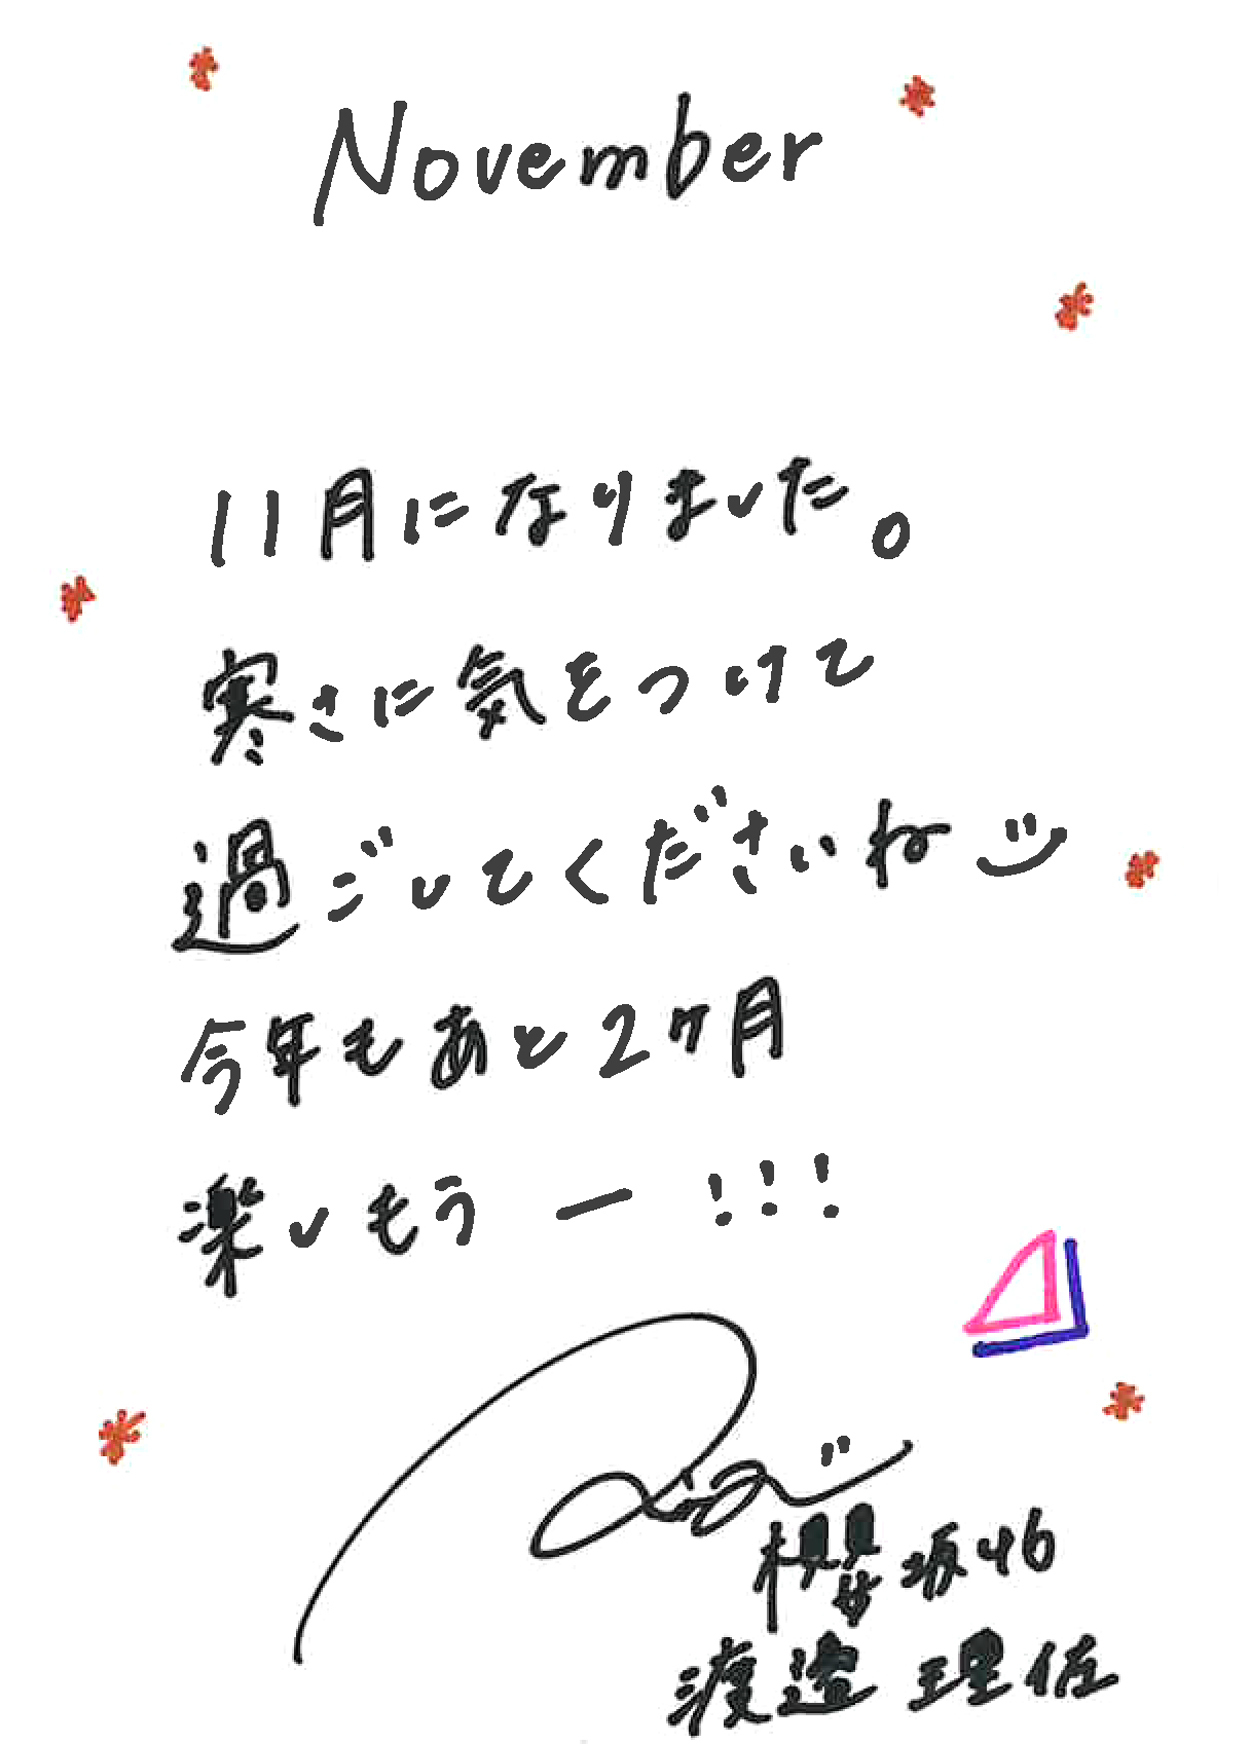 November
11月になりました。
寒さに気をつけて
過ごしてくださいね
今年もあと2ヶ月
楽しもうー!!!
櫻坂46
渡邉理佐